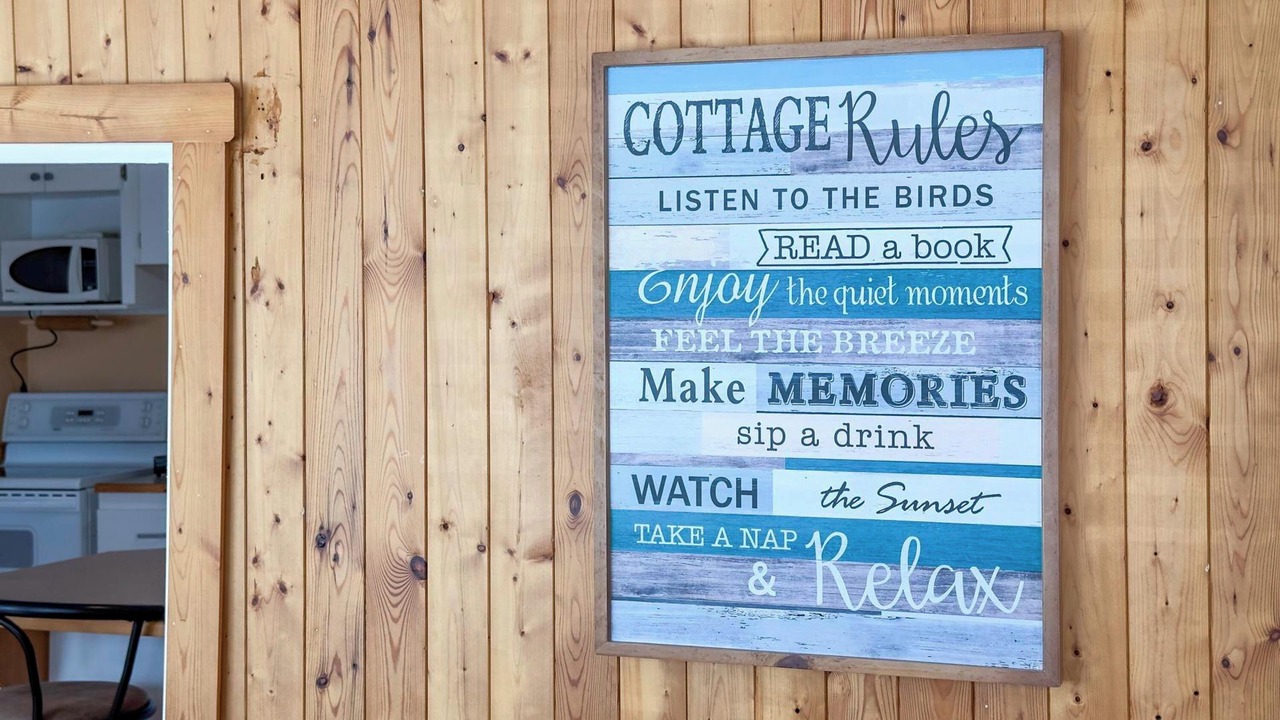 COTTAGE Rules
LISTEN TO THE BIRDS
READ a book
Enjoy the quiet moments
FEEL THE BREEZE
Make MEMORIES
sip a drink
WATCH the Sunset
TAKE A NAP
& Relax